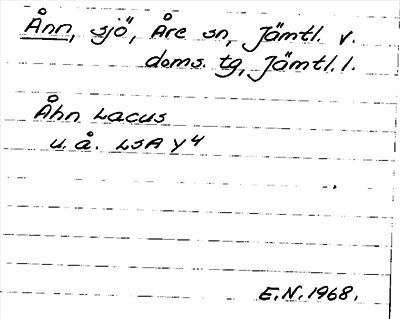 Ånn, sjö, Åre sn, Jämtl. v.
doms. tg, Jämtl. l.
Åhn Lacus
u. å. LSA Y4
E.N. 1968.